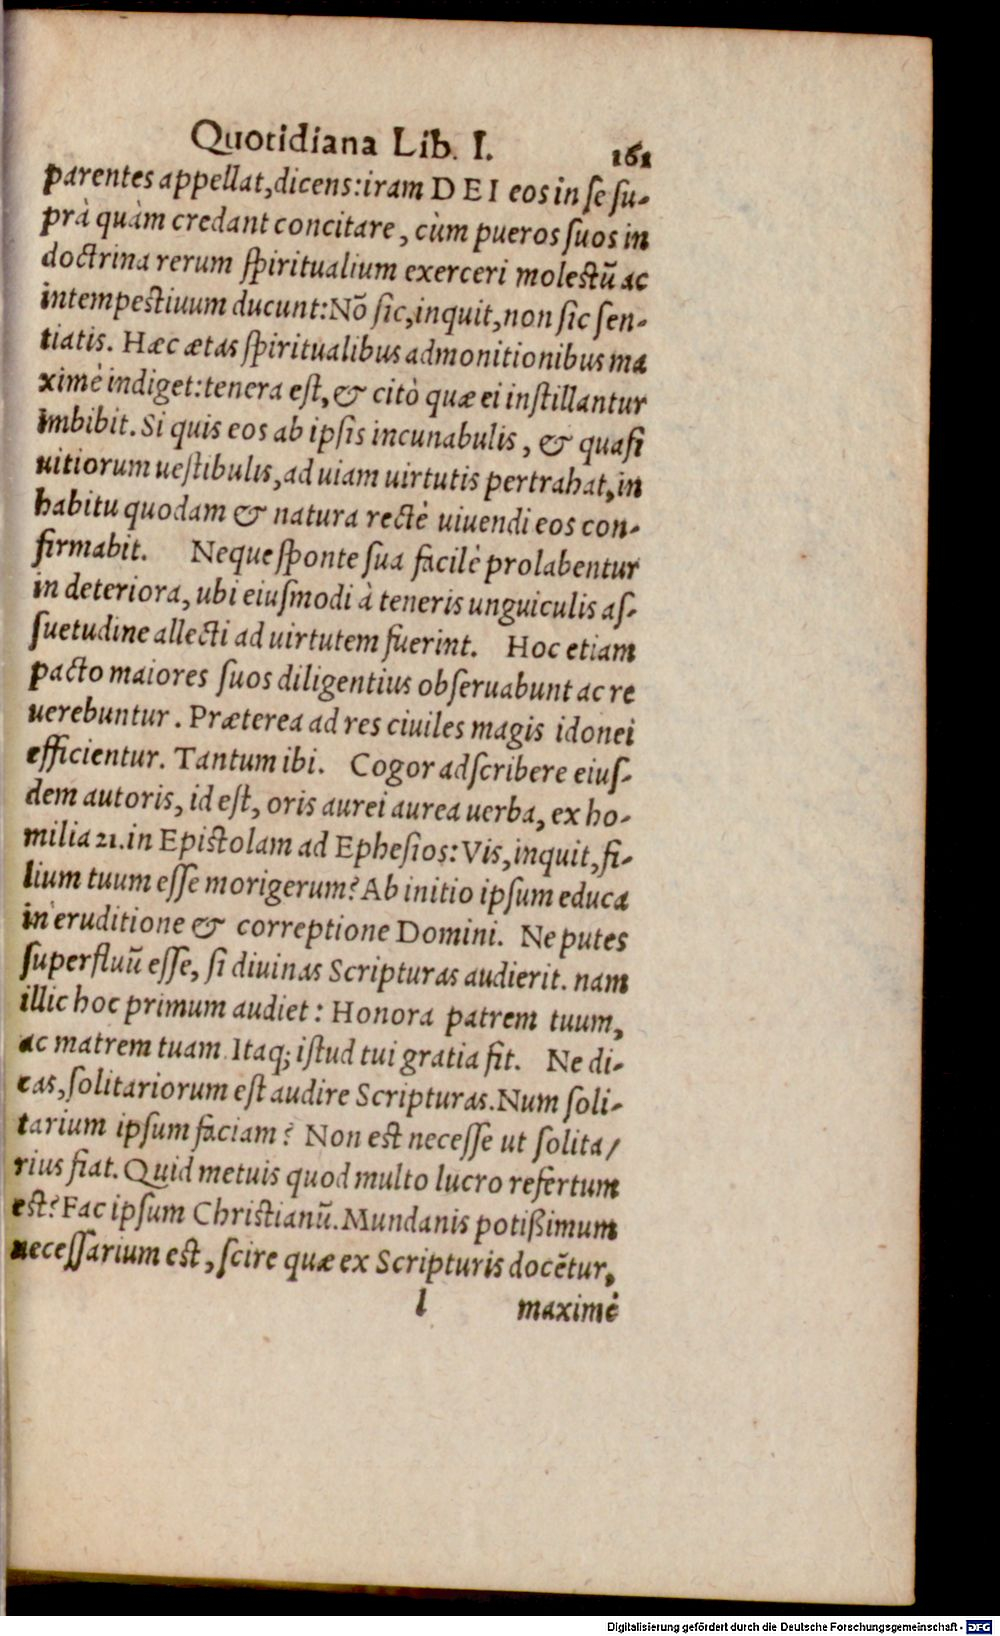 Quotidiana Lib. I. 161
parentes appellat, dicens: iram DEI eos in se su-
prà quàm credant concitare, cùm pueros suos in
doctrina rerum spiritualium exerceri molestū ac
intempestiuum ducunt: Nō sic, inquit, non sic sen-
tiatis. Hæc ætas spiritualibus admonitionibus ma
ximè indiget: tenera est, & citò quæ ei instillantur
imbibit. Si quis eos ab ipsis incunabulis, & quasi
uitiorum uestibulis, ad uiam uirtutis pertrahat, in
habitu quodam & natura rectè uiuendi eos con-
firmabit. Neque sponte sua facilè prolabentur
in deteriora, ubi eiusmodi à teneris unguiculis as-
suetudine allecti ad uirtutem fuerint. Hoc etiam
pacto maiores suos diligentius obseruabunt ac re
uerebuntur. Præterea ad res ciuiles magis idonei
efficientur. Tantum ibi. Cogor adscribere eius-
dem autoris, id est, oris aurei aurea uerba, ex ho-
milia 21. in Epistolam ad Ephesios: Vis, inquit, fi-
lium tuum esse morigerum? Ab initio ipsum educa
in eruditione & correptione Domini. Ne putes
superfluū esse, si diuinas Scripturas audierit. nam
illic hoc primum audiet: Honora patrem tuum,
ac matrem tuam. Itaq; istud tui gratia fit. Ne di-
cas, solitariorum est audire Scripturas. Num soli-
tarium ipsum faciam? Non est necesse ut solita/
rius fiat. Quid metuis quod multo lucro refertum
est? Fac ipsum Christianū. Mundanis potißimum
necessarium est, scire quæ ex Scripturis docētur,
l maximè
Digitalisierung gefördert durch die Deutsche Forschungsgemeinschaft - DFG